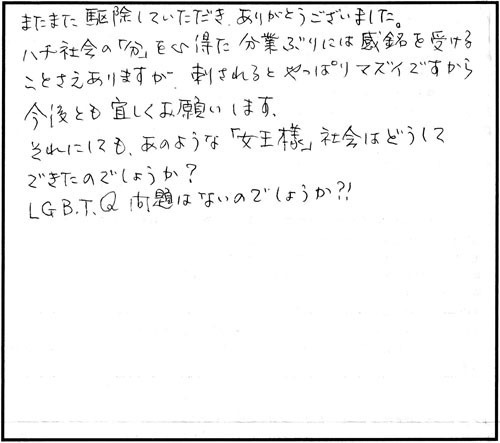 またまた駆除していただき、ありがとうございました。
ハチ社会の「分」を心得た分業ぶりには感銘を受ける
ことさえありますが、刺されるとやっぱりマズイですから
今後とも宜しくお願いします、
それにしても、あのような「女王様」社会はどうして
できたのでしょうか?
LGB.T.Q問題はないのでしょうか?!